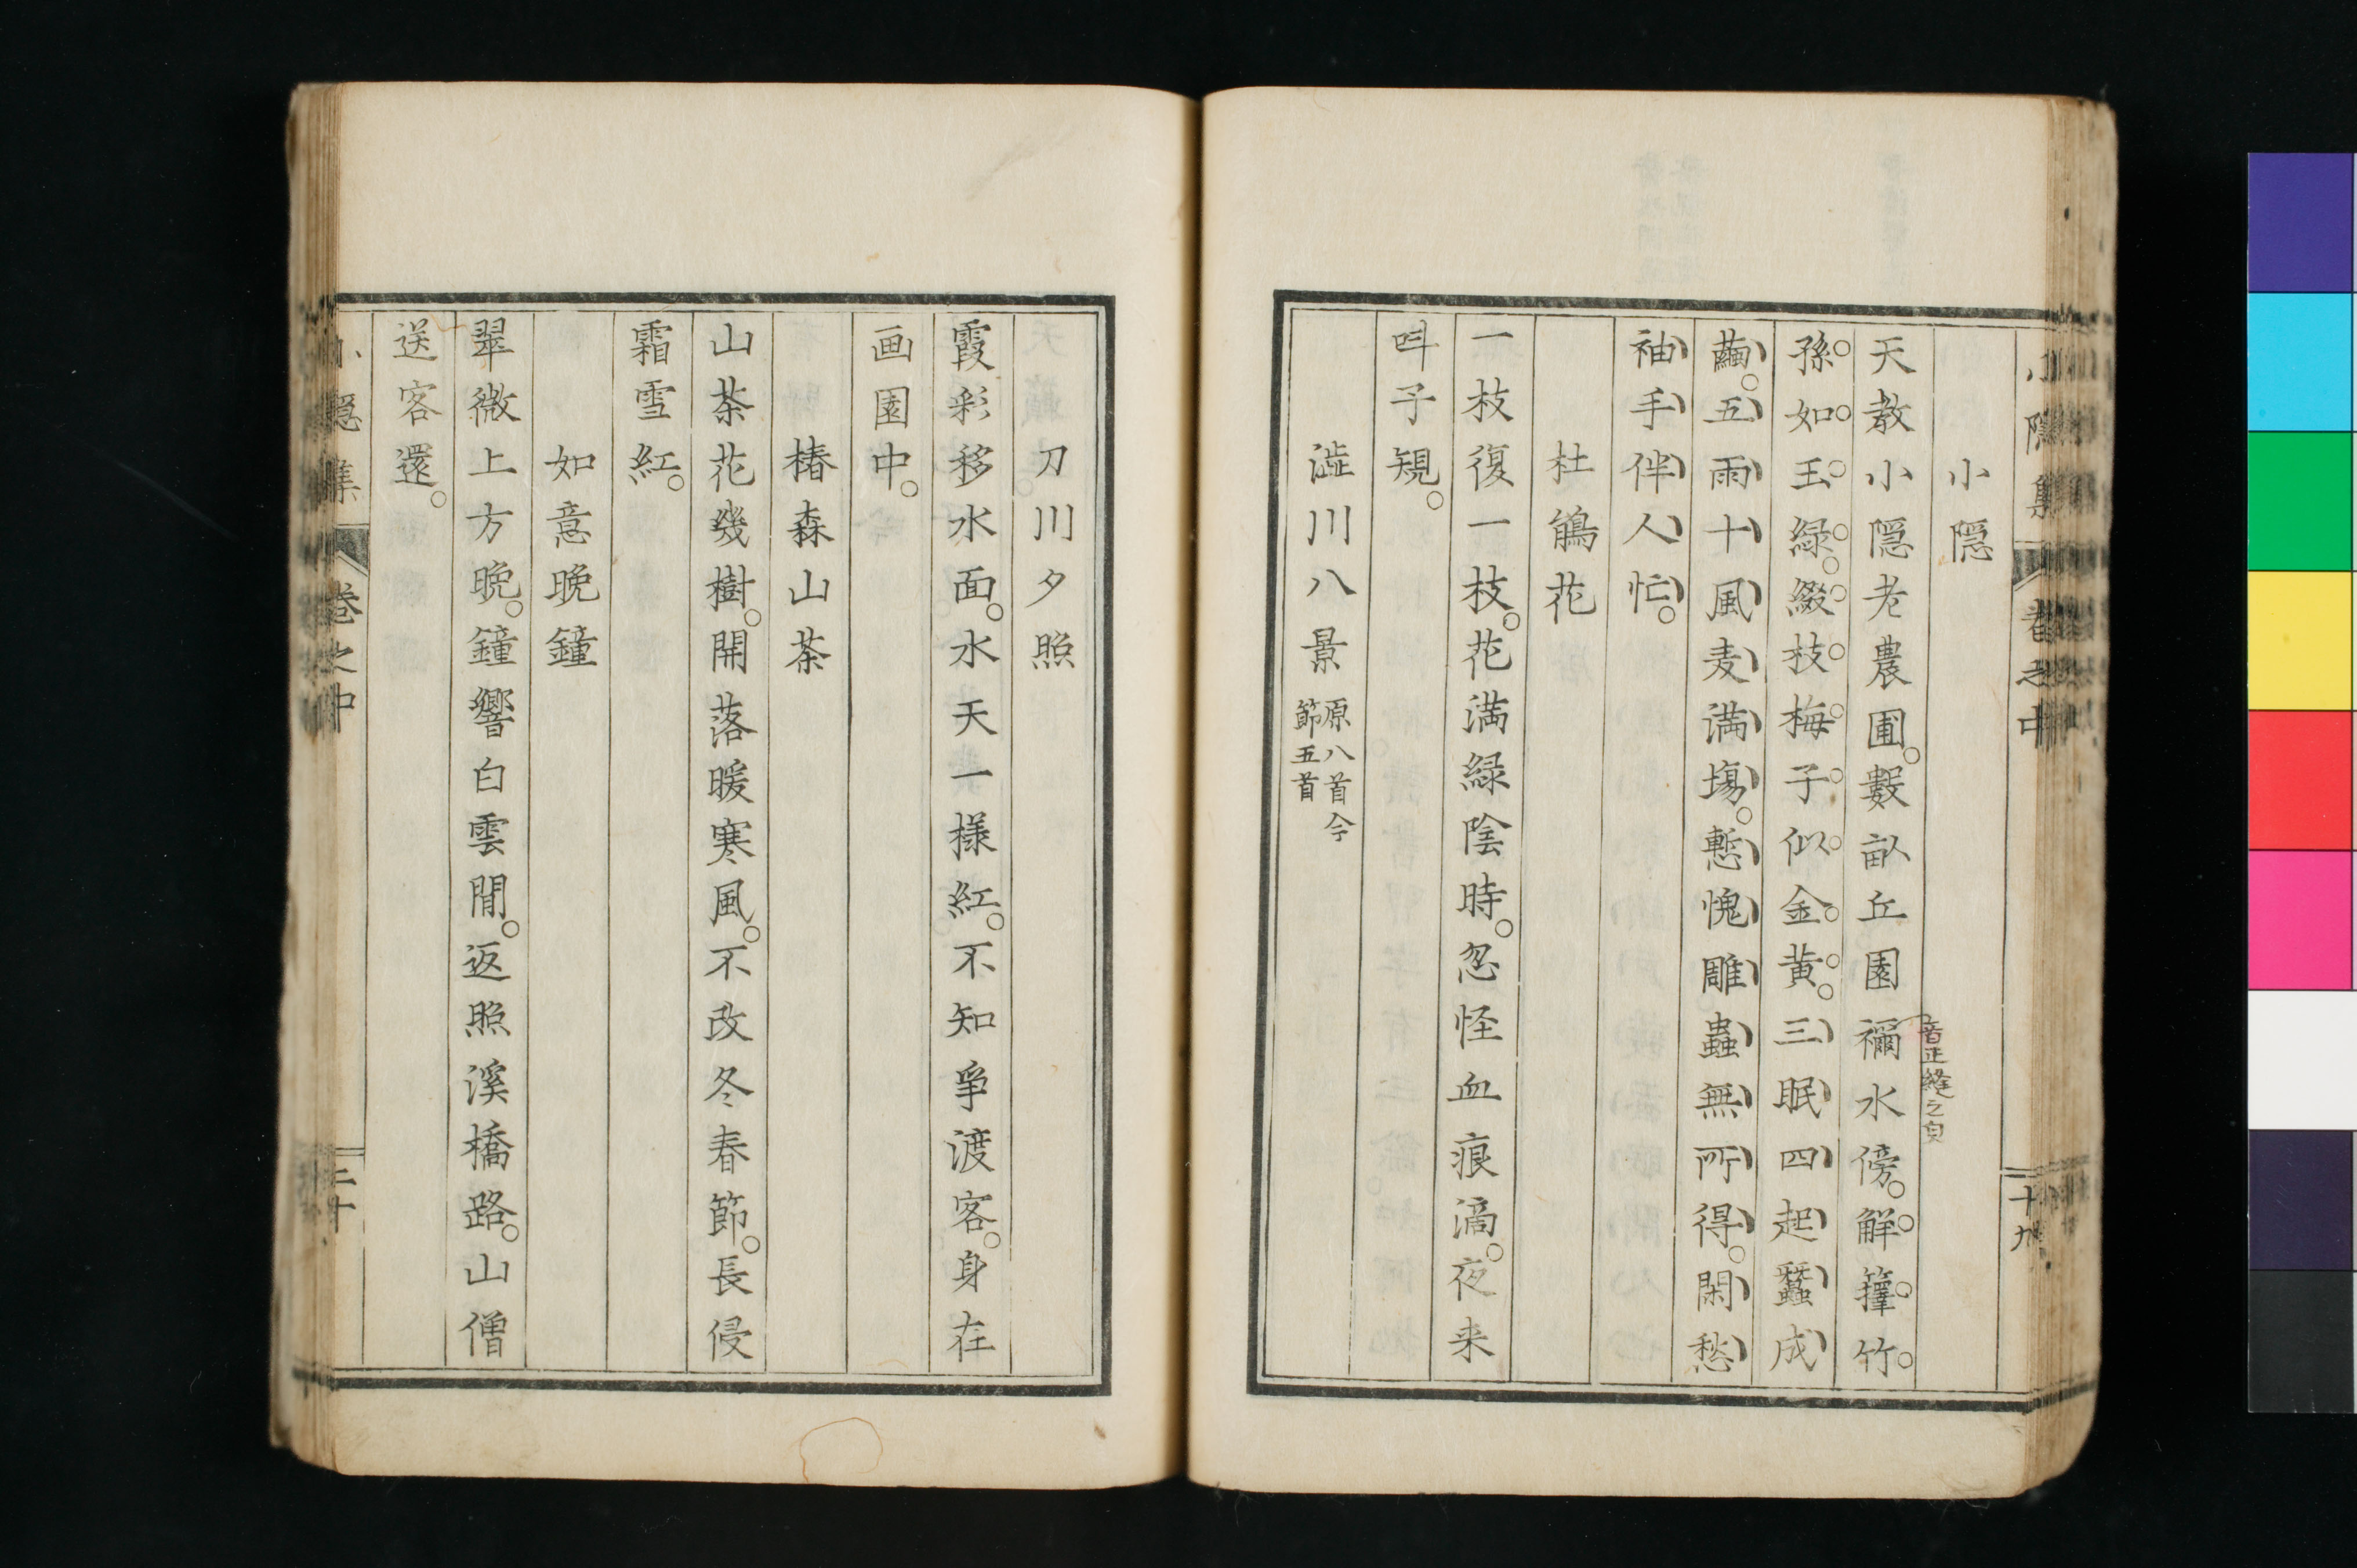 小隠集
卷之中
十九
小隠
天教小隠老農圃。數畝丘園禰水傍。解籜竹
孫如玉緑。綴枝梅子似金黄。三眠四起蠶成
繭。五雨十風麦満塲。慙愧雕蟲無所得。閑愁
袖手伴人忙。
杜鵑花
一枝復一枝。花満緑陰時。忽怪血痕滴。夜来
呌子規。
澁川八景
原八首今
節五首
刀川夕照
霞彩移水面。水天一様紅。不知爭渡客。身在
画圖中。
椿森山茶
山茶花幾樹。開落暖寒風。不改冬春節。長侵
霜雪紅。
如意晩鐘
翠微上方晩。鐘響白雲間。返照溪橋路。山僧
送客還。
小隠集
卷之中
二十